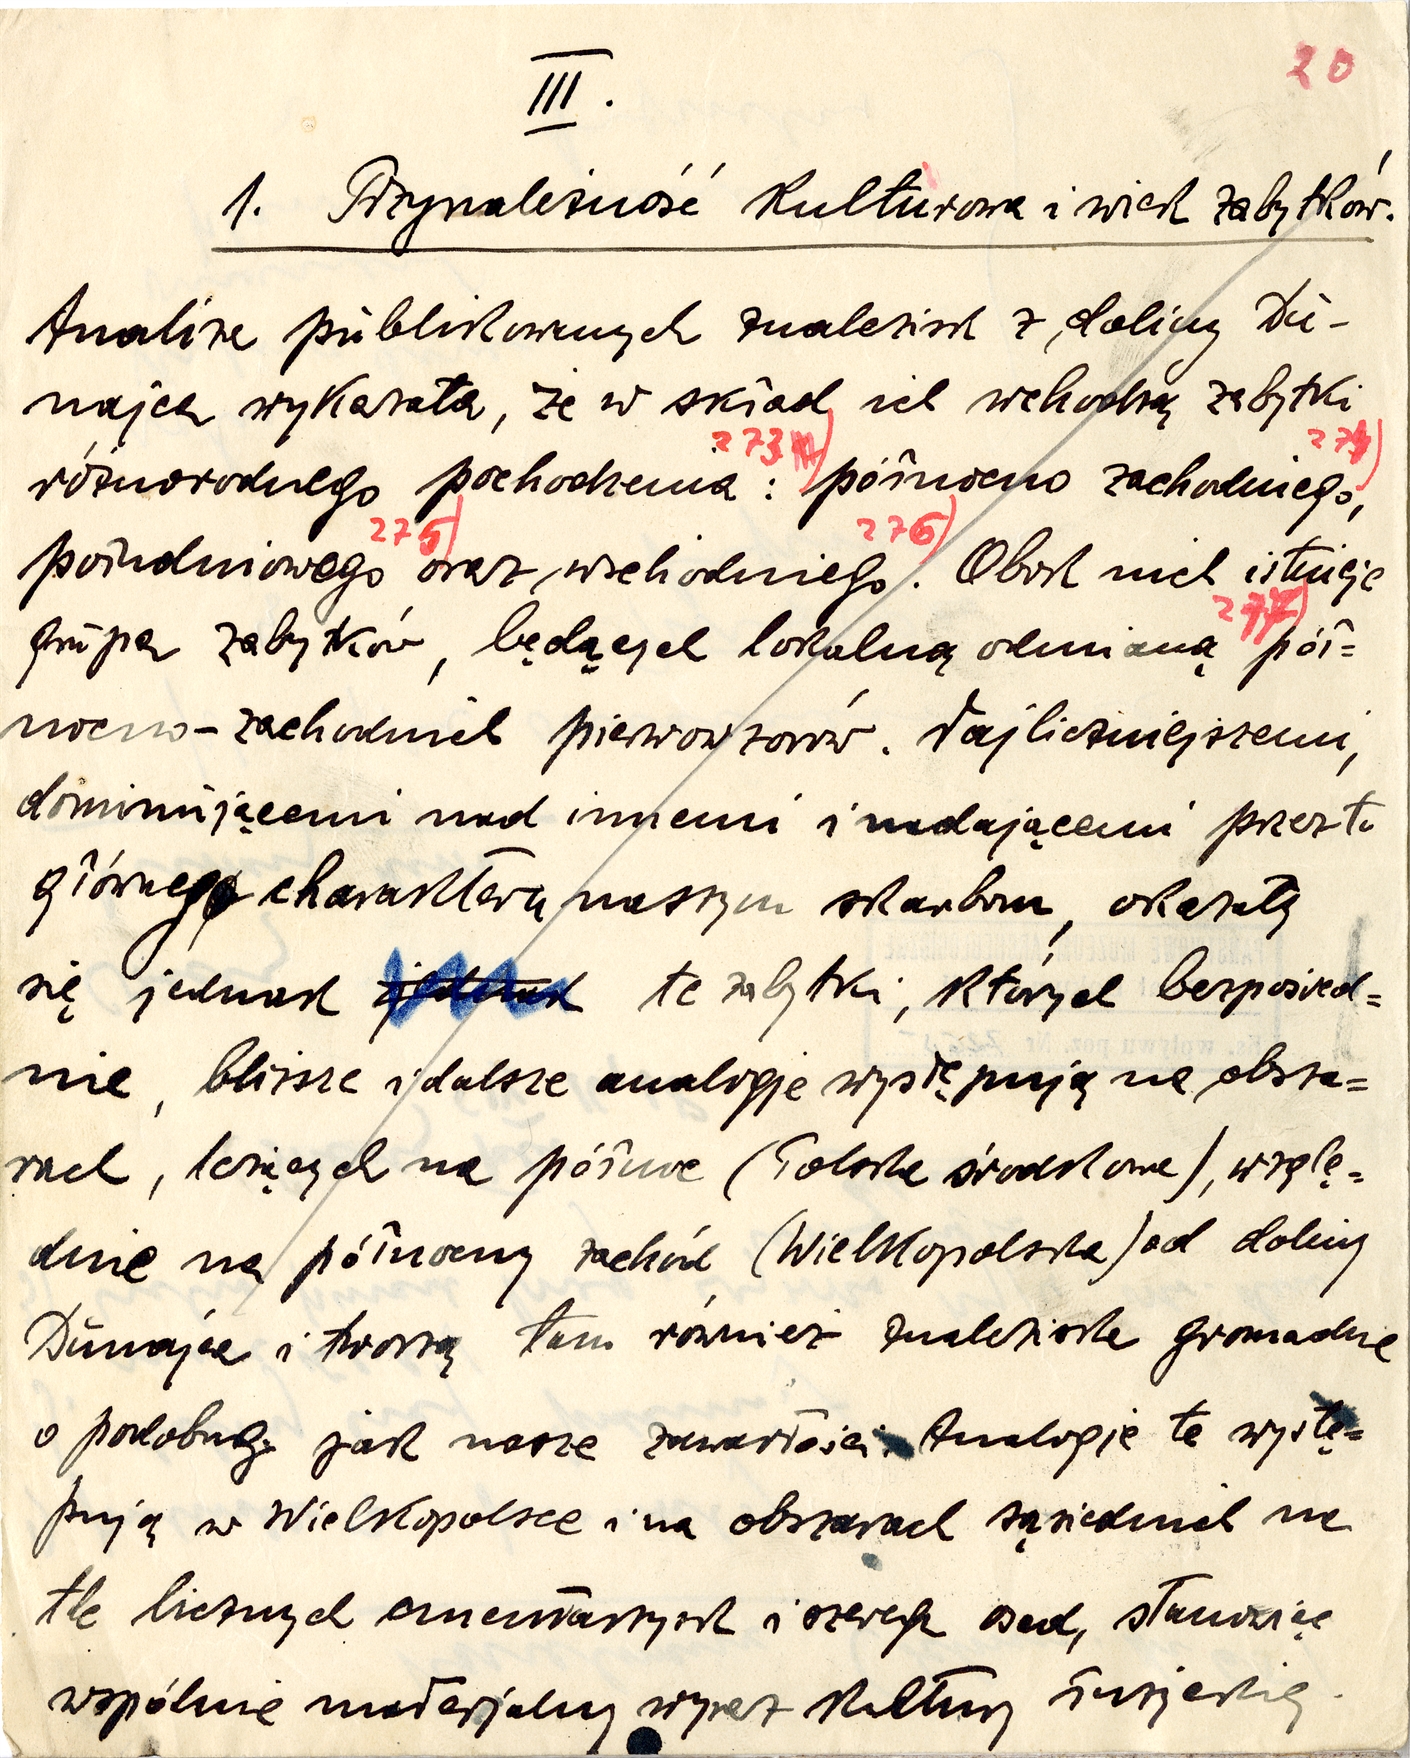 20
III.
1. Przynależność kulturowa i wiek zabytków.
Analiza publikowanych znalezisk z doliny Du-
najca wykazała, że w skład ich wchodzą zabytki
różnorodnego pochodzenia: 273) północno zachodniego, 274)
południowego 275) oraz wschodniego 276). Obok nich istnieje
grupa zabytków, będących lokalną odmianą 277) pół=
nocno-zachodnich pierwowzorów. Najliczniejszemi,
dominującemi nad innemi i nadającemi przez to
głównego charakteru naszym skarbom, okazały
się jednak te zabytki, których bezpośred=
nie, bliższe i dalsze analogje występują na obsza=
rach, leżących na północ (Polska środkowa), wzglę=
dnie na północny zachód (Wielkopolska) od doliny
Dunajca i tworzą tam również znaleziska gromadne
o podobnej jak nasze zawartości. Analogje te wystę=
pują w Wielkopolsce i na obszarach sąsiednich na
tle licznych cmentarzysk i szeregu osad, stanowiąc
wspólnie materjalny wyraz kultury łużyckiej.